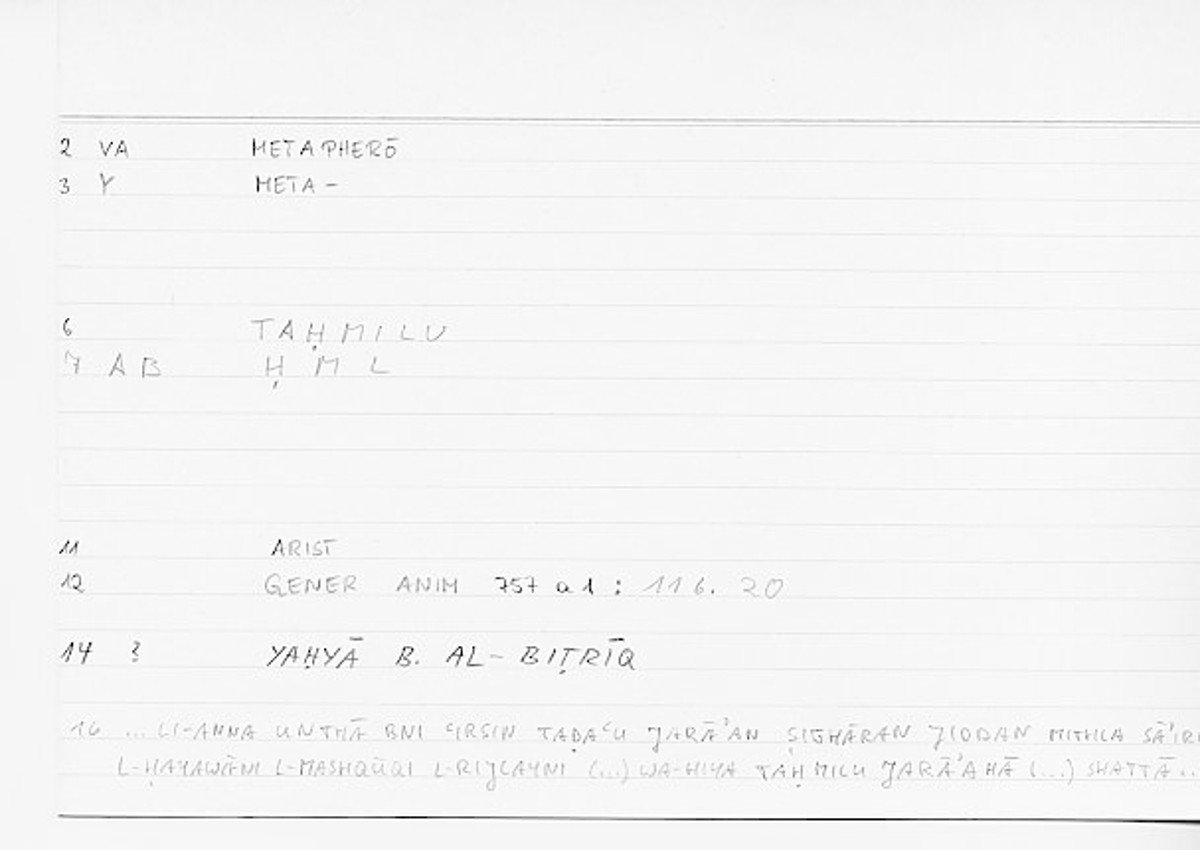 2 VA METAPHERŌ
3 Y META-
6 TAḤMILU
7 AB Ḥ M L
11 ARIST
12 GENER ANIM 757 a 1 : 116. 20
14 ? YAḤYĀ B. AL-BIṬRĪQ
16 ... LI-ANNA UNTHĀ BNI ʿIRSIN TAḌAʿU JARĀʾAN ṢIGHĀRAN JIDDAN MITHLA SĀʾIRI
L-ḤAYAWĀNI L-MASHQŪQI L-RIJLAYNI (...) WA-HIYA TAḤMILU JARĀʾAHĀ (...) SHATTĀ...